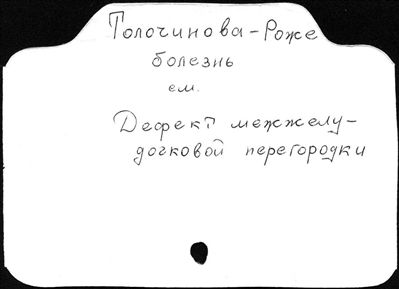 Толочинова-Роже
болезнь
см.
Дефект межжелу-
дочковой перегородки